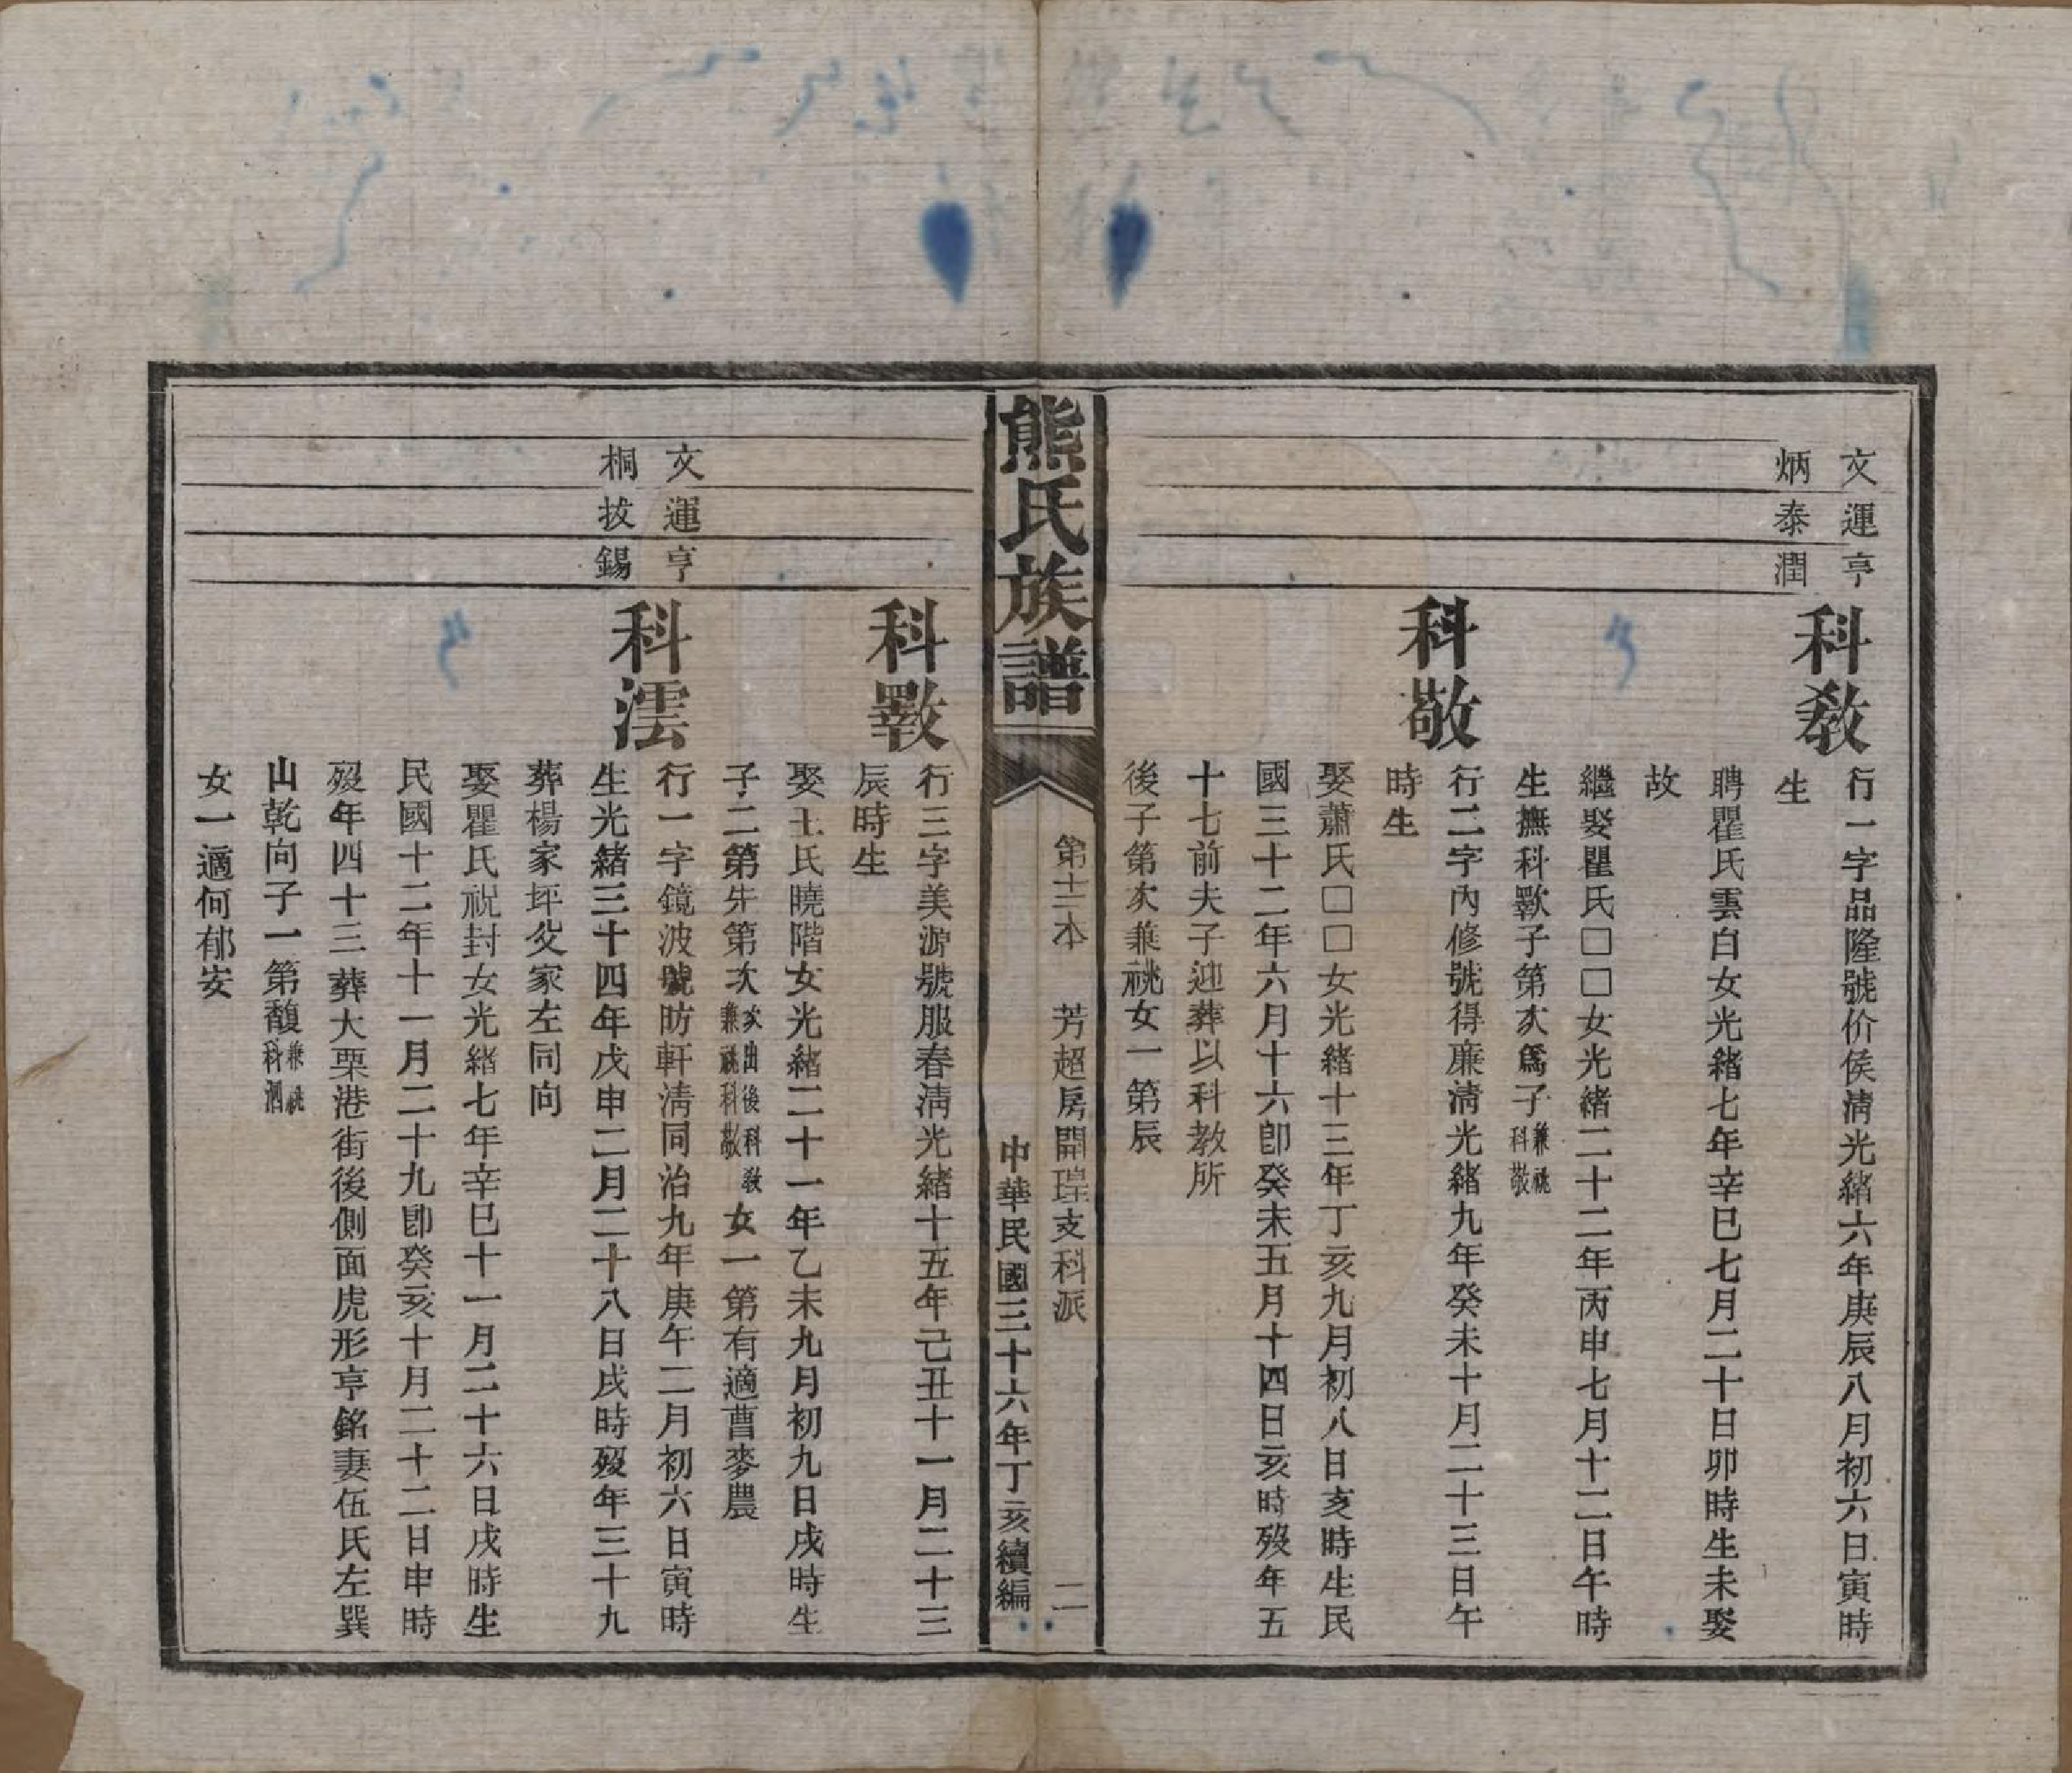 文運亨
炳泰潤
科教
行一字品隆號价侯淸光緒六年庚辰八月初六日寅時
生
聘瞿氏雲白女光緒七年辛巳七月二十日卯時生未娶
故
繼娶瞿氏□□女光緒二十二年丙申七月十二日午時
生撫科斁子第次爲子兼祧
科敬
科敬
行二字內修號得廉淸光緒九年癸未十月二十三日午
時生
娶蕭氏□□女光緒十三年丁亥九月初八日亥時生民
國三十二年六月十六卽癸未五月十四日亥時歿年五
十七前夫子迎葬以科教所
後子第次兼祧女一第辰
熊氏族譜
第十三本 芳超房開瑝支科派 二
中華民國三十六年丁亥續編
科斁
行三字美源號服春淸光緒十五年己丑十一月二十三
辰時生
娶王氏曉階女光緒二十一年乙未九月初九日戌時生
子二第先第次次出後科教
兼祧科敬女一第有適曹麥農
文運亨
桐拔錫
科澐
行一字鏡波號昉軒淸同治九年庚午二月初六日寅時
生光緒三十四年戊申二月二十八日戌時歿年三十九
葬楊家坪父冢左同向
娶瞿氏祝封女光緒七年辛巳十一月二十六日戌時生
民國十二年十一月二十九卽癸亥十月二十二日申時
歿年四十三葬大栗港街後側面虎形亨銘妻伍氏左巽
山乾向子一第馥兼祧
科泗
女一適何郁安